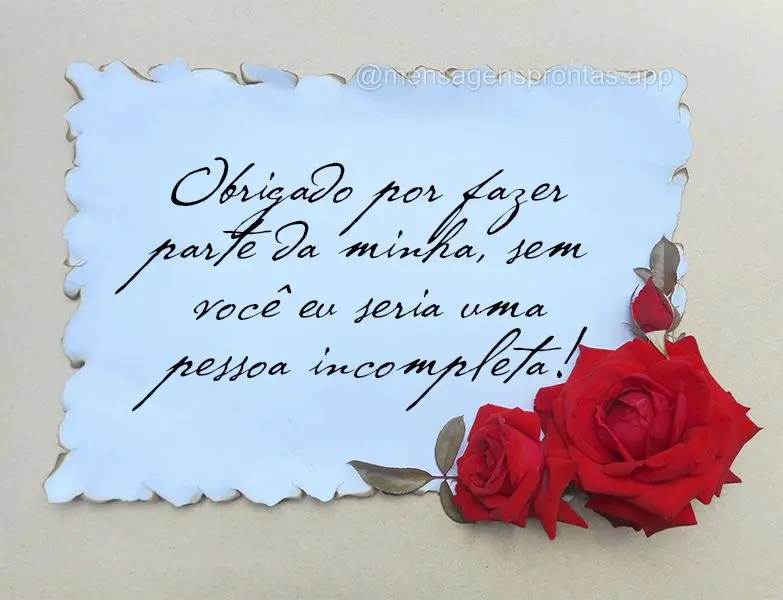 @mensagensprontas.app
Obrigado por fazer
parte da minha, sem
você eu seria uma
pessoa incompleta!